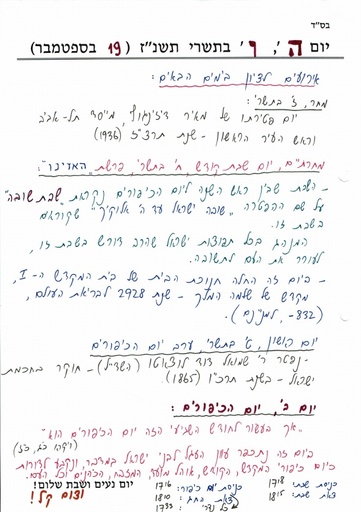 בס"ד
יום ה', ו' בתשרי תשנ"ז (19 בספטמבר)
אירועים לציון בימים הבאים:
מחר, ז' בתשרי:
יום פטירתו של מאיר דיזנגוף, מייסד תל-אביב
וראש העיר הראשון - שנת תרצ"ז (1936)
מחרתיים, יום שבת קודש, ח' בתשרי, פרשת "האזינו":
- השבת שבין ראש השנה ליום הכיפורים נקראת "שבת שובה"
על שם ההפטרה "שובה ישראל עד ה' אלוקיך" שקוראים
בשבת זו.
המנהג בכל תפוצות ישראל שהרב דורש בשבת זו,
לעורר את העם לתשובה.
- ביום זה החלה חנוכת הבית של בית המקדש ה-I,
מקדש של שלמה המלך - שנת 2928 לבריאת העולם,
(832-, למנינם).
יום ראשון, ט' בתשרי, ערב יום הכיפורים
- נפטר ר' שמואל דוד לוצאטו (השד"ל) - חוקר בחכמת
ישראל - בשנת תרכ"ו (1865).
יום ב', יום הכיפורים:
"אך בעשור לחודש השביעי הזה יום הכיפורים הוא"
(ויקרא כג, כז)
ביום זה נתכפר עוון העגל לבני ישראל במדבר, ונקבע לדורות
כיום כיפור המקדש, הקודש, אוהל מועד, המזבח, הכהנים וכל העם.
יום נעים ושבת שלום!
וצום קל!
כניסת שבת: 1718
צאת שבת: 1815
כניסת יום כפור: 1716
צאת החג: 1810